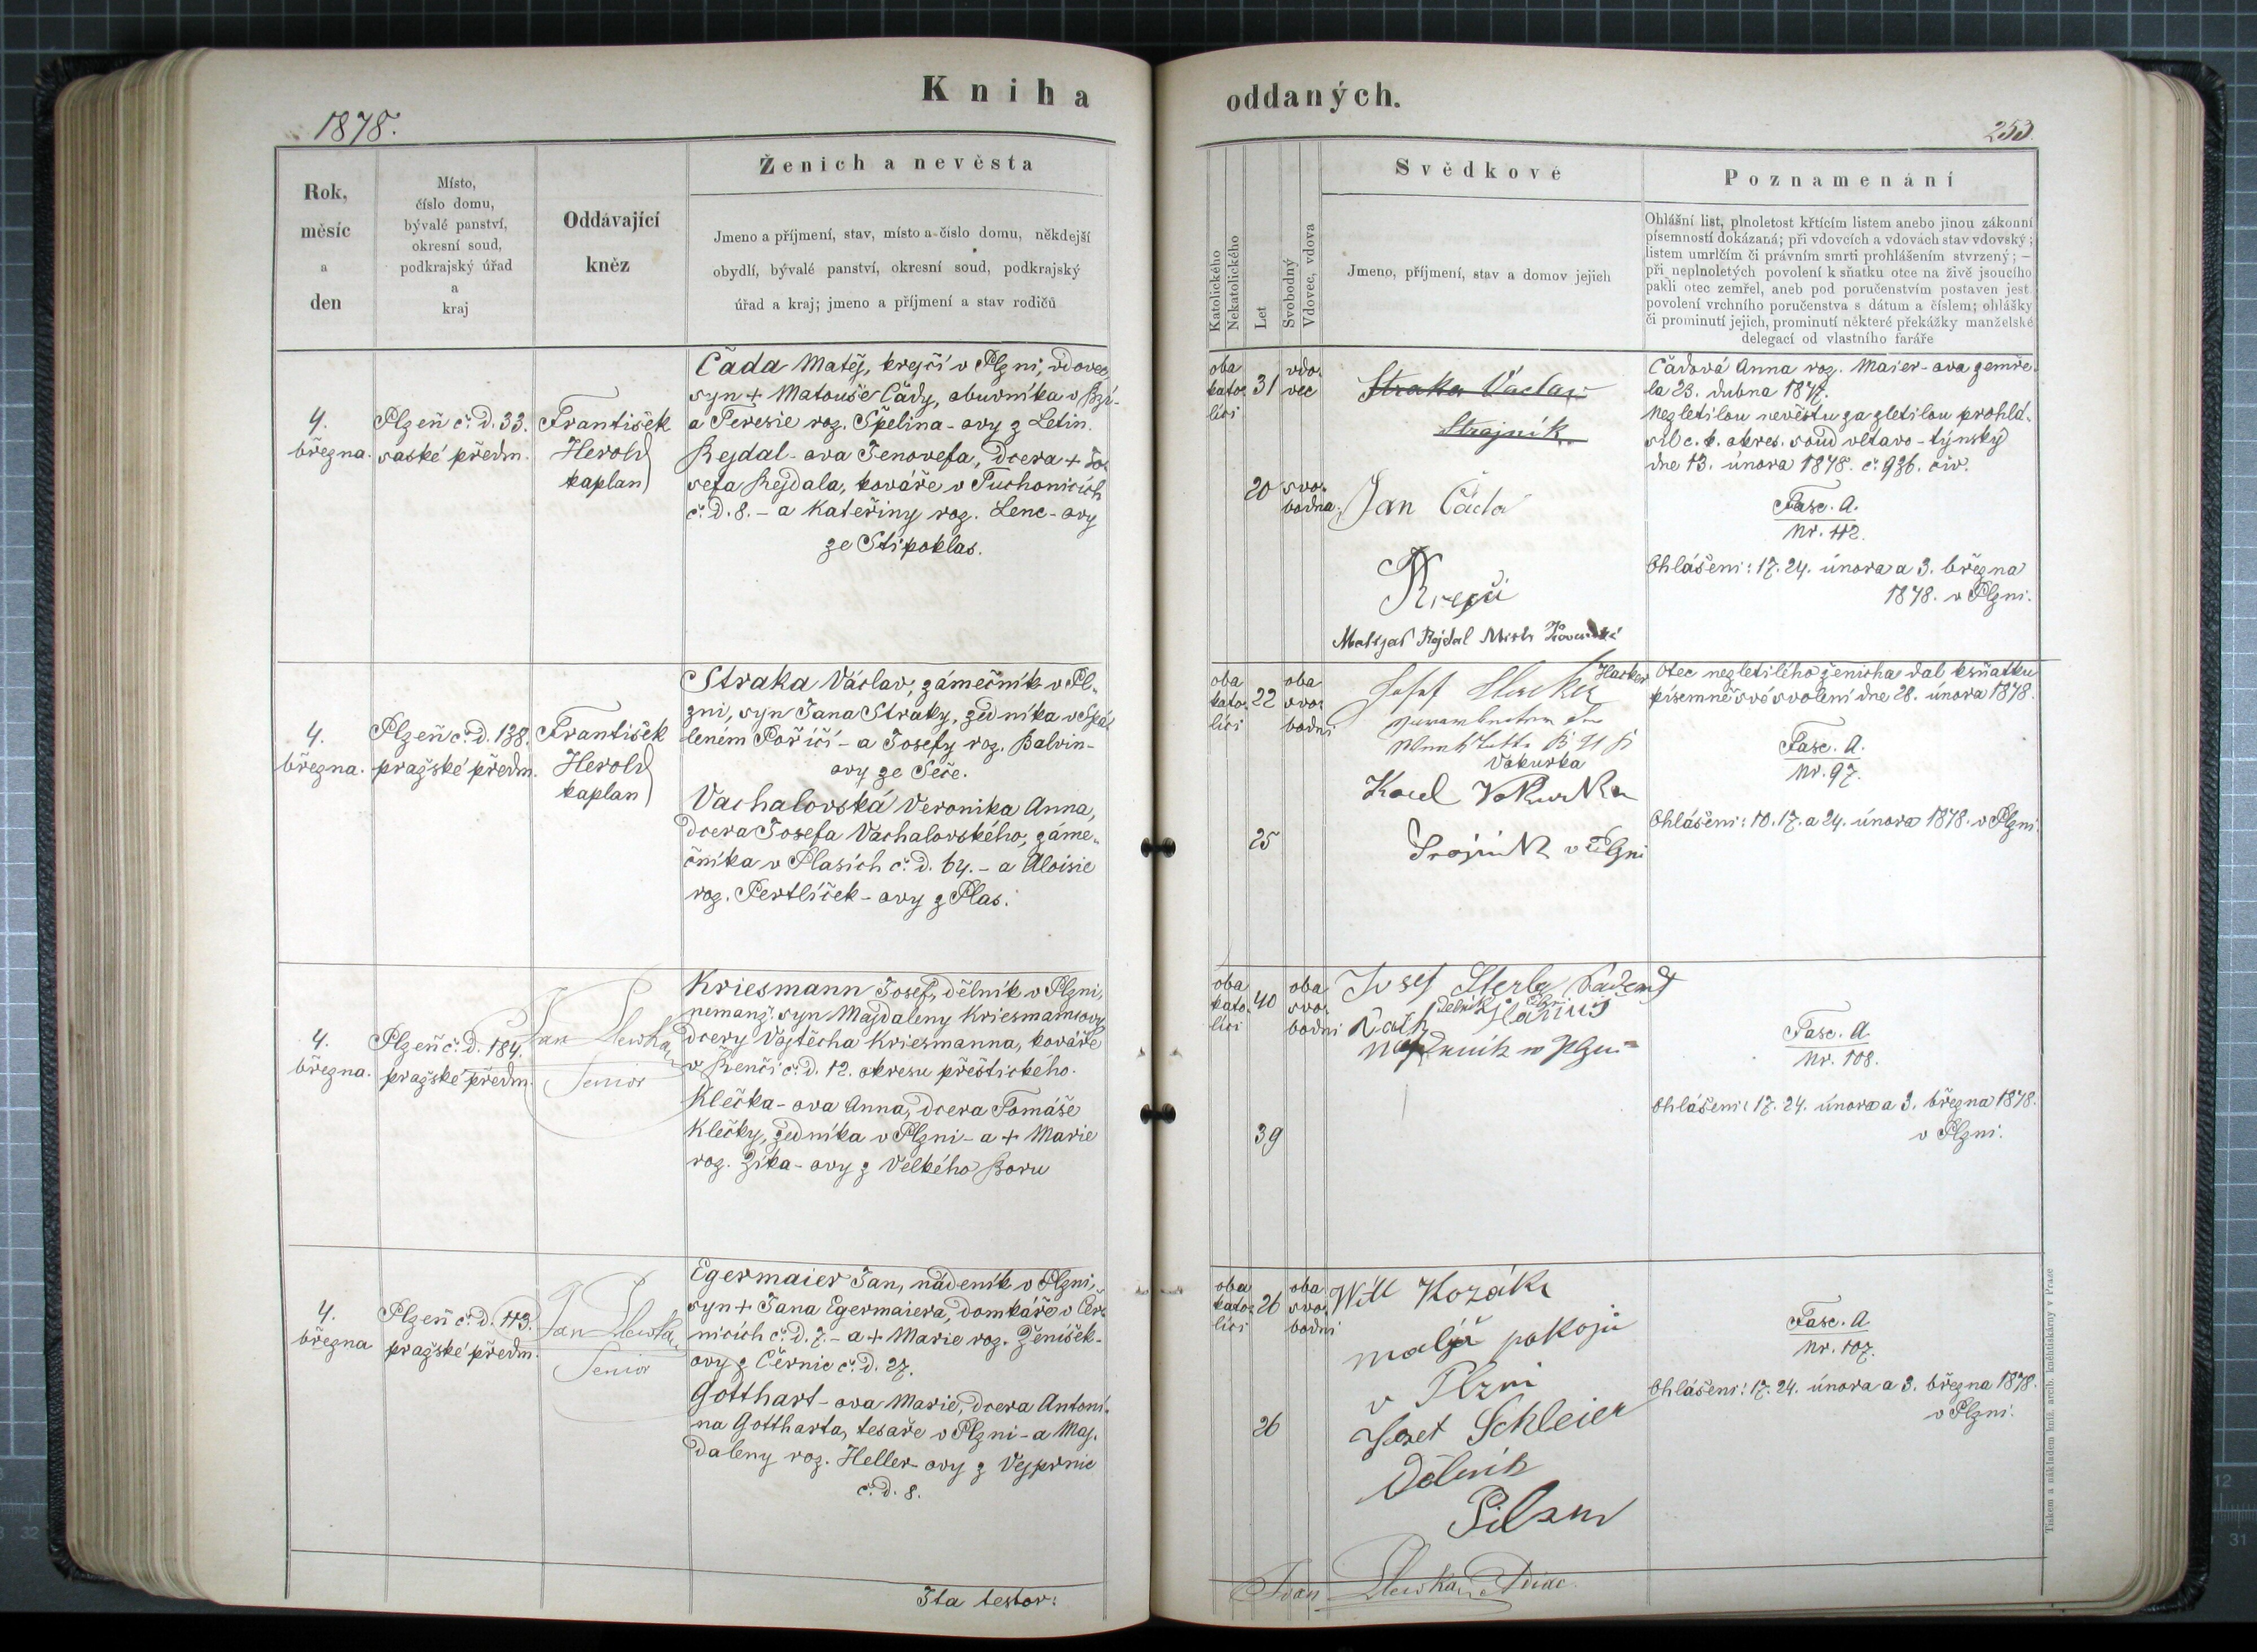 Kniha
oddaných.
1878.
253.
Rok,
měsíc
a
den
Místo,
číslo domu,
bývalé panství,
okresní soud,
podkrajský úřad
a
kraj
Oddávající
kněz
Ženich a nevěsta
Jmeno a příjmení, stav, místo a číslo domu, někdejší
obydlí, bývalé panství, okresní soud, podkrajský
úřad a kraj; jmeno a příjmení a stav rodičů
Katolického
Nekatolického
Let
Svobodný
Vdovec, vdova
Svědkové
Jmeno, příjmení, stav a domov jejich
Poznamenání
Ohlášní list, plnoletost křtícím listem anebo jinou zákonní
písemností dokázaná; při vdovcích a vdovách stav vdovský;
listem umrlčím či právním smrti prohlášením stvrzený; —
při neplnoletých povolení k sňatku otce na živě jsoucího
pakli otec zemřel, aneb pod poručenstvím postaven jest
povolení vrchního poručenstva s dátum a číslem; ohlášky
či prominutí jejich, prominutí některé překážky manželské
delegací od vlastního faráře
4.
března.
Plzeň č. d. 33.
saské předm.
František
Herold
kaplan
Čada Matěj, krejčí v Plzni, vdovec
syn + Matouše Čády, obuvníka v
a Teresie roz. Špelina-ovy z Letin.
Rejdal-ova Jenovefa, dcera + Jo-
sefa Rejdala, kováře v Tuchonicích
č. d. 8. – a Kateřiny roz. Lenc-ovy
ze Stipoklas.
oba
kato-
líci
31
vdo-
vec
20
svo-
bodna.
Straka Václav
Strojník.
Jan Čada
Krejčí
Matyas Rejdal
Čadová Anna roz. Maier-ova zemře-
la 23. dubna 1877.
Nezletilou nevěstu za zletilou prohlá-
sil c. k. okres. soud vltavo-týnský
dne 13. února 1878. č. 936. civ.
Fasc. A.
Nr. 112.
Ohlášeni: 17. 24. února a 3. března
1878. v Plzni.
4.
března.
Plzeň č. d. 138.
pražské předm.
František
Herold
kaplan
Straka Václav, zámečník v Pl-
zni, syn Jana Straky, zedníka v Spá-
leném Poříčí – a Josefy roz. Balvín-
ovy ze Seče.
Vachalovská Veronika Anna,
dcera Josefa Vachalovského, záme-
čníka v Plasích č. d. 64. – a Aloisie
roz. Pertlíček-ovy z Plas.
oba
kato-
líci
22
oba
svo-
bodni
25
Josef Hacker
Hacker
Vokurka
Karel Vokurka
Strojník v Plzni
Otec nezletilého ženicha dal k sňatku
písemně své svolení dne 28. února 1878.
Fasc. A.
Nr. 97.
Ohlášeni: 10. 17. a 24. února 1878. v Plzni.
4.
března.
Plzeň č. d. 184.
pražské předm.
Jan
Senior
Kriesmann Josef, dělník v Plzni,
nemanž. syn Majdaleny Kriesmannovy
dcery Vojtěcha Kriesmanna, kováře
v Renči č. d. 12. okresu přeštického.
Klečka-ova Anna, dcera Tomáše
Klečky, zedníka v Plzni – a + Marie
roz. Zíka-ovy z Velkého Boru
oba
kato-
líci
40
oba
svo-
bodni
39
Josef
Dělník
v Plzni
Fasc. A.
Nr. 108.
Ohlášeni: 17. 24. února a 3. března 1878.
v Plzni.
4.
března
Plzeň č. d. 113.
pražské předm.
Jan
Senior
Egermaier Jan, nádeník v Plzni,
syn + Jana Egermaiera, domkáře v Čer-
nicích č. d. 7. – a + Marie roz. Ženíšek-
ovy z Černic č. d. 27.
Gotthart-ova Marie, dcera Antoní-
na Gottharta, tesaře v Plzni – a Maj-
daleny roz. Heller-ovy z Vejprnic
č. d. 8.
oba
kato-
líci
26
oba
svo-
bodni
26
Will Kozák
malíř pokojů
v Plzni
Josef Schleier
Dělník
Pilsen
Fasc. A.
Nr. 107.
Ohlášeni: 17. 24. února a 3. března 1878.
v Plzni.
Ita testor:
Tiskem a nákladem kníž. arcib. knihtiskárny v Praze